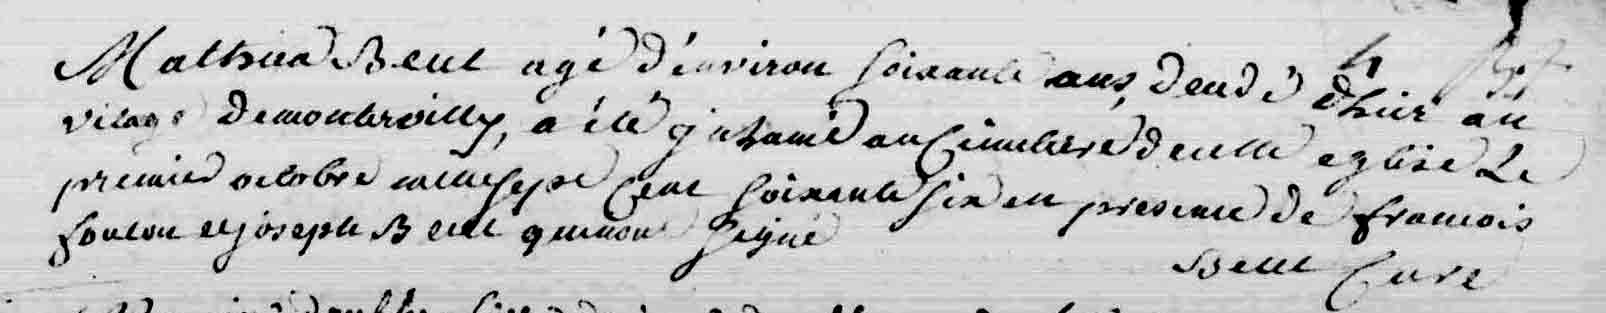 Mathieu Beut agé d'environ soixante ans, deudé d'hier au
vilage demontrvilly, a été jnhamé au Cimetiere decette eglise Le
premier octobre mille sept cent soixante six en presence de francois
foulon et joseph Beut qui nont signé
Beut Curé